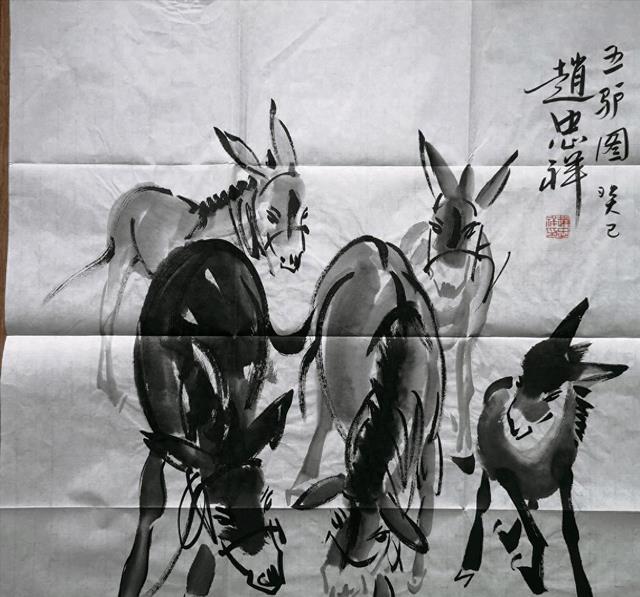 五驴图 癸巳
趙忠祥